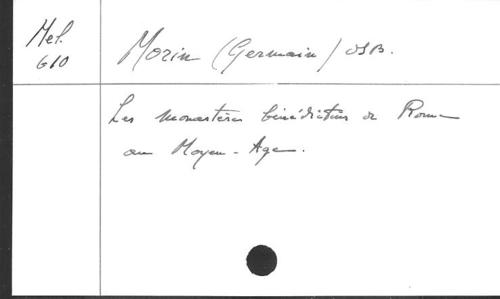 Mel.
610
Morin (Germain) OSB.
Les monastères bénédictins de Rome
au Moyen-Age.